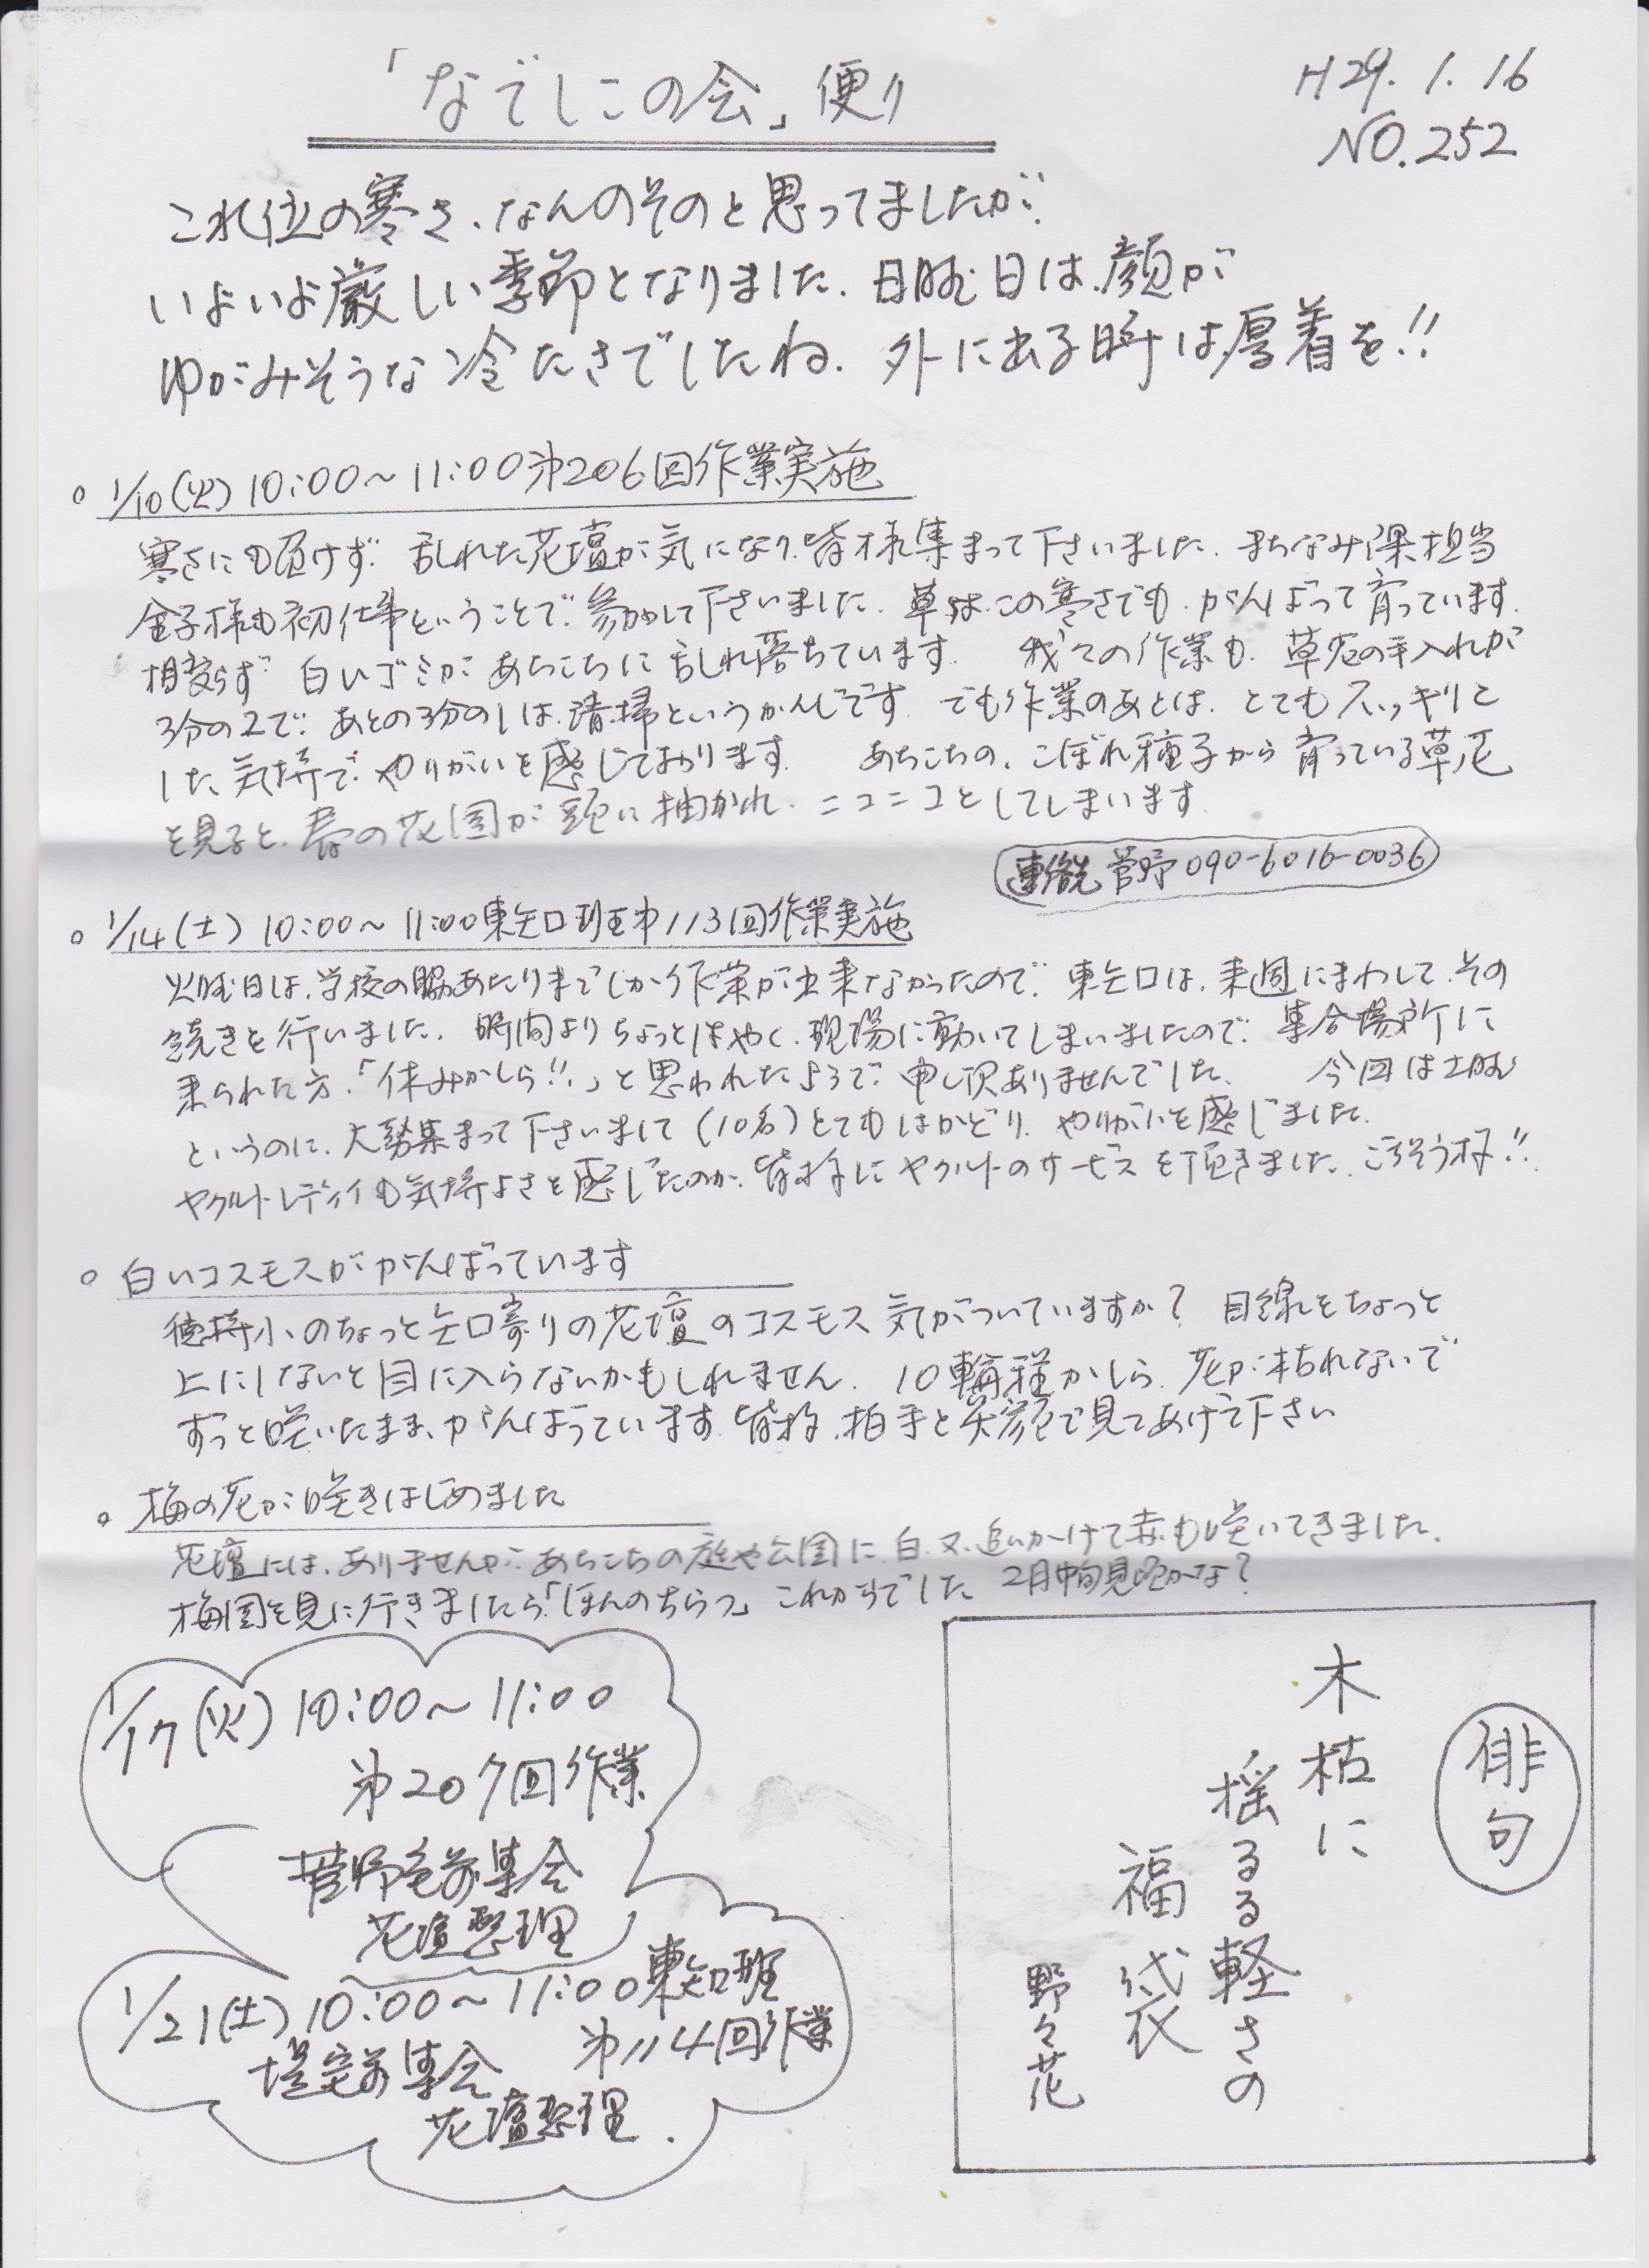 「なでしこの会」便り
H29.1.16
NO.252
これ位の寒さ、なんのそのと思ってましたが、
いよいよ厳しい季節となりました。日曜日は、顔が
ゆがみそうな冷たさでしたね。外に出る時は厚着を!!
○ 1/10(火) 10:00~11:00 第206回作業実施
寒さにも負けず、乱れた花壇が気になり、皆様集まって下さいました。まちなみ課担当
金子様も初仕事ということで、参加して下さいました。草は、この寒さでも、がんばって育っています。
相変らず 白いゴミが、あちこちに乱れ落ちています。 我々の作業も、草花の手入れが
3分の2で、あとの3分の1は、清掃というかんじです。でも作業のあとは、とてもスッキリと
した気持で、やりがいを感じております。 あちこちの、こぼれ種子から育っている草花
を見ると、春の花園が頭に描かれ、ニコニコとしてしまいます。
連絡先 菅野 090-6016-0036
○ 1/14(土) 10:00~11:00 東矢口班第113回作業実施
火曜日は、学校の脇あたりまでしか作業が出来なかったので、東矢口は、来週にまわして、その
続きを行いました。時間よりちょっとはやく、現場に動いてしまいましたので、集合場所に
来られた方、「休みかしら!!」と思われたようで、申し訳ありませんでした。 今回は土曜
というのに、大勢集まって下さいまして(10名)とてもはかどり、やりがいを感じました。
ヤクルトレディイも気持よさを感じたのか、皆様にヤクルトのサービスを頂きました。ごちそう様!!
○ 白いコスモスががんばっています
徳持小のちょっと矢口寄りの花壇のコスモス気がついていますか? 目線をちょっと
上にしないと目に入らないかもしれません。10輪程かしら、花が枯れないで
ずっと咲いたまま、がんばっています。皆様、拍手と笑顔で見てあげて下さい
○ 梅の花が咲きはじめました
花壇には、ありませんが、あちこちの庭や公園に、白、又、追いかけて赤も咲いてきました。
梅園を見に行きましたら「ほんのちらっ」これからでした。2月中旬見頃かな?
1/17(火) 10:00~11:00
第207回作業
菅野宅前集合
花壇整理
1/21(土) 10:00~11:00 東矢口班
第114回作業
堤宅前集合
花壇整理.
俳句
木枯に
揺るる軽さの
福袋
野々花